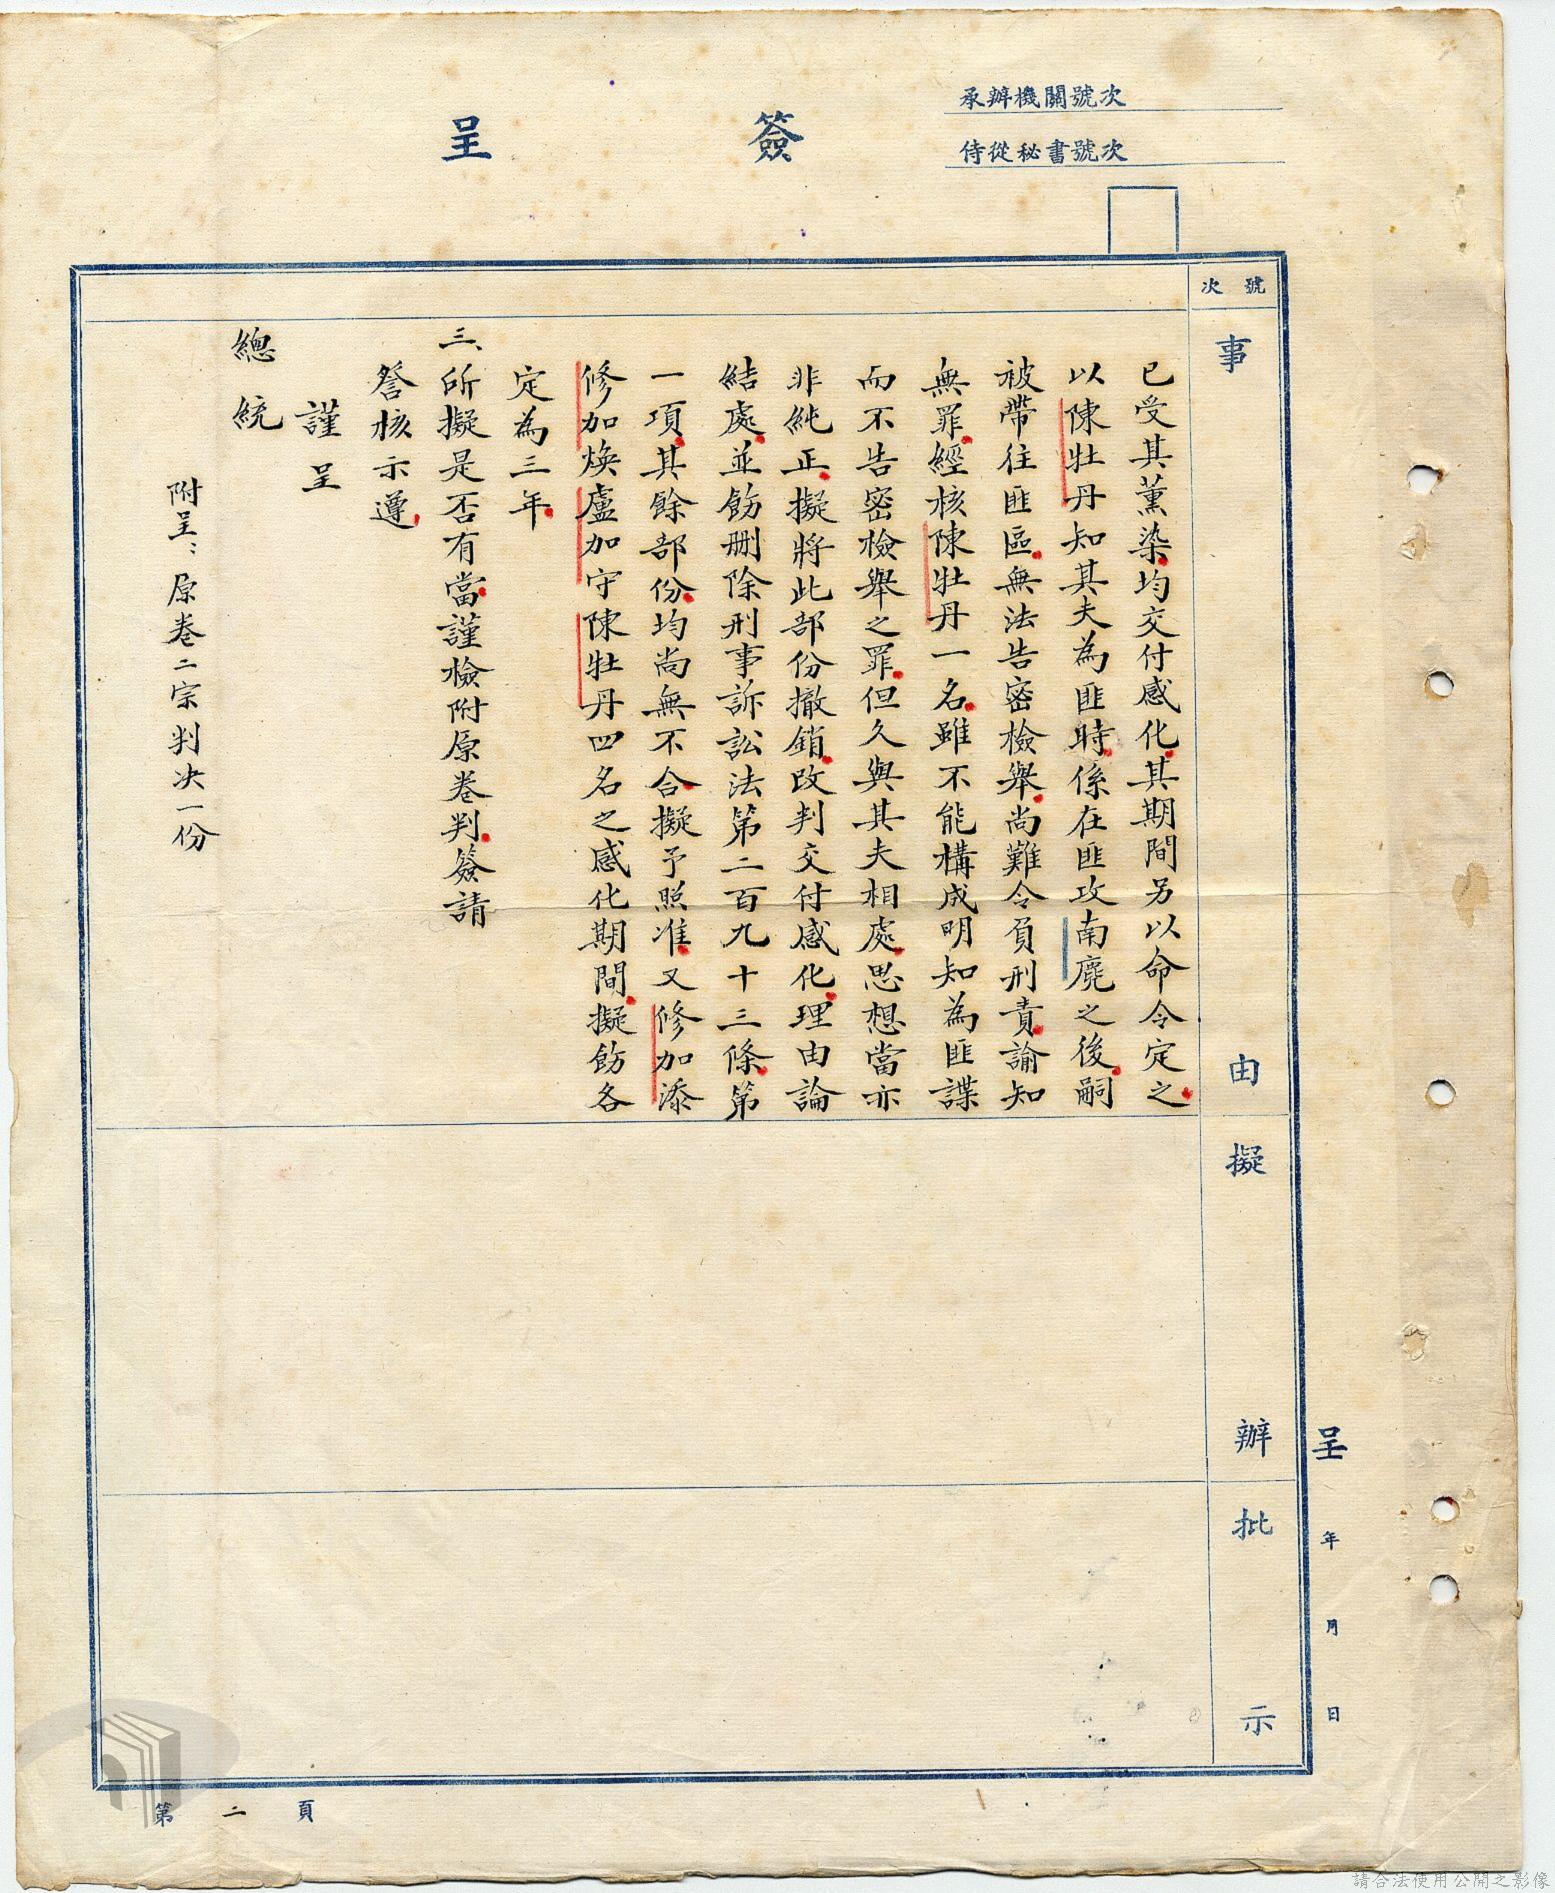 承辦機關號次
侍從秘書號次
簽呈
號次
事由
擬辦
批示
呈 年 月 日
已受其薰染均交付感化其期間另以命令定之
以陳牡丹知其夫為匪時係在匪攻南麂之後嗣
被帶往匪區無法告密檢舉尚難令負刑責諭知
無罪經核陳牡丹一名雖不能構成明知為匪諜
而不告密檢舉之罪但久與其夫相處思想當亦
非純正擬將此部份撤銷改判交付感化理由論
結處並飭刪除刑事訴訟法第二百九十三條第
一項其餘部份均尚無不合擬予照准又修加添
修加煥盧加守陳牡丹四名之感化期間擬飭各
定為三年
三、所擬是否有當謹檢附原卷判簽請
詧核示遵
謹呈
總統
附呈：原卷二宗判决一份
第二頁
請合法使用公開之影像